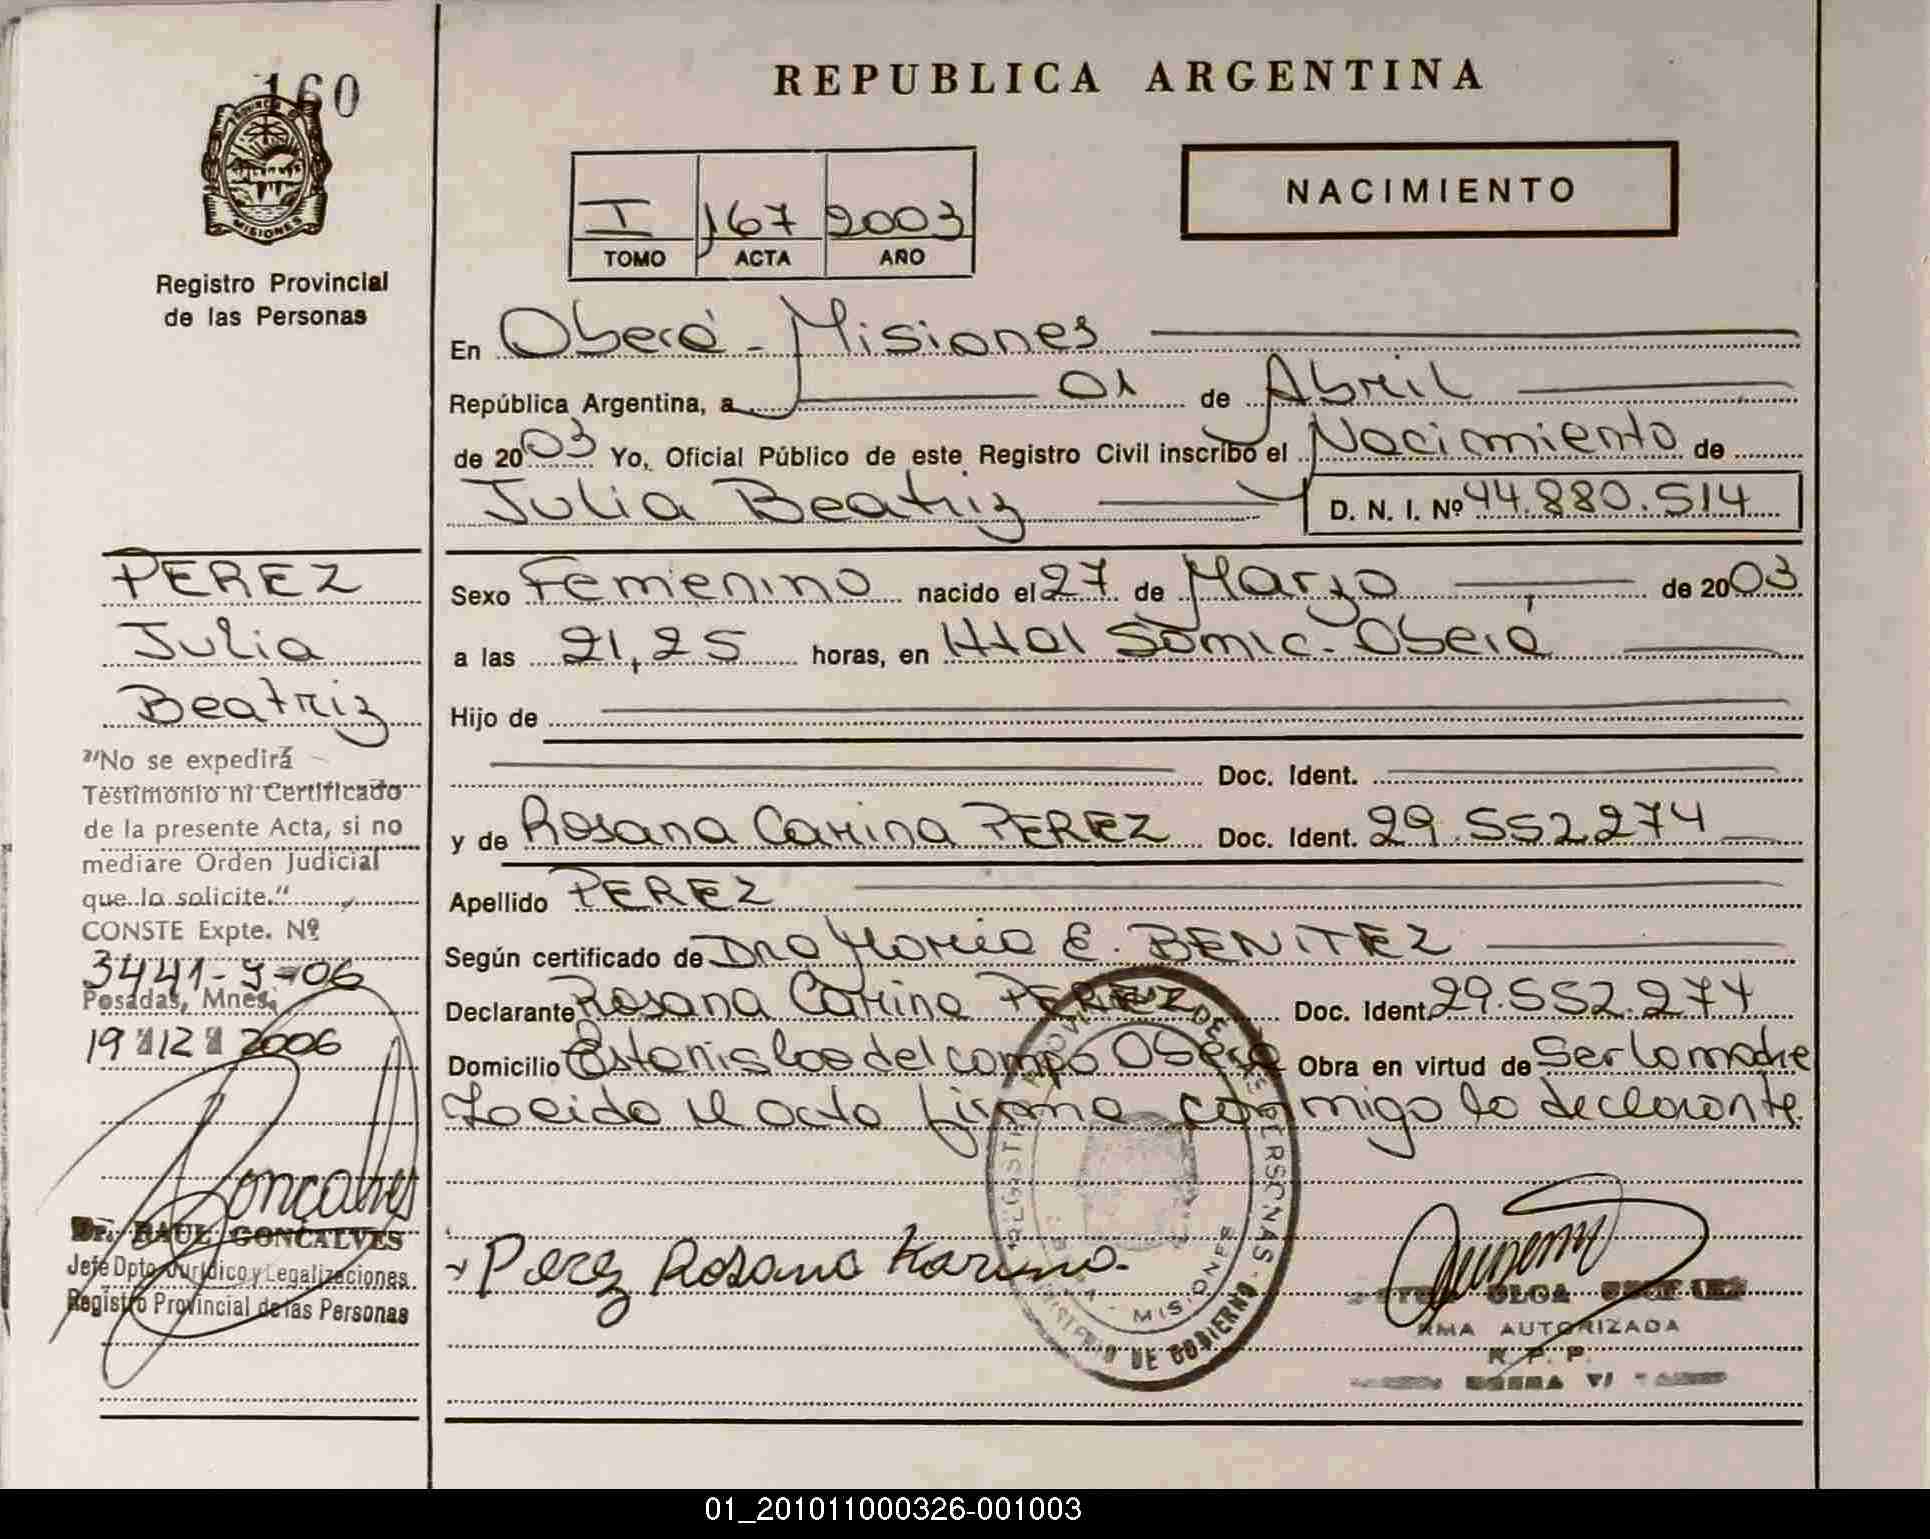 160
PROVINCIA DE MISIONES
Registro Provincial
de las Personas
REPUBLICA ARGENTINA
NACIMIENTO
I 167 2003
TOMO ACTA AÑO
En Oberá - Misiones
República Argentina, a 01 de Abril
de 2003 Yo, Oficial Público de este Registro Civil inscribo el Nacimiento de
Julia Beatriz D. N. I. Nº 44.880.514
PEREZ
Julia
Beatriz
"No se expedirá
Testimonio ni Certificado
de la presente Acta, si no
mediare Orden Judicial
que lo solicite."
CONSTE Expte. Nº
3441-9-06
Posadas, Mnes,
19 12 2006
Goncalves
Dr. RAUL GONCALVES
Jefe Dpto. Jurídico y Legalizaciones
Registro Provincial de las Personas
Sexo Femenino nacido el 27 de Marzo de 2003
a las 21,25 horas, en Htal Samic - Oberá
Hijo de
Doc. Ident.
y de Rosana Carina PEREZ Doc. Ident. 29.552.274
Apellido PEREZ
Según certificado de Dra Maria E. BENITEZ
Declarante Rosana Carina PEREZ Doc. Ident. 29.552.274
Domicilio Estanislao del campo Oberá Obra en virtud de Ser la madre
Leida el acta firma conmigo la declarante.
Perez Rosana Karina.
MISIONES
MINISTERIO DE GOBIERNO
OLGA
FIRMA AUTORIZADA
R. P. P.
01_201011000326-001003